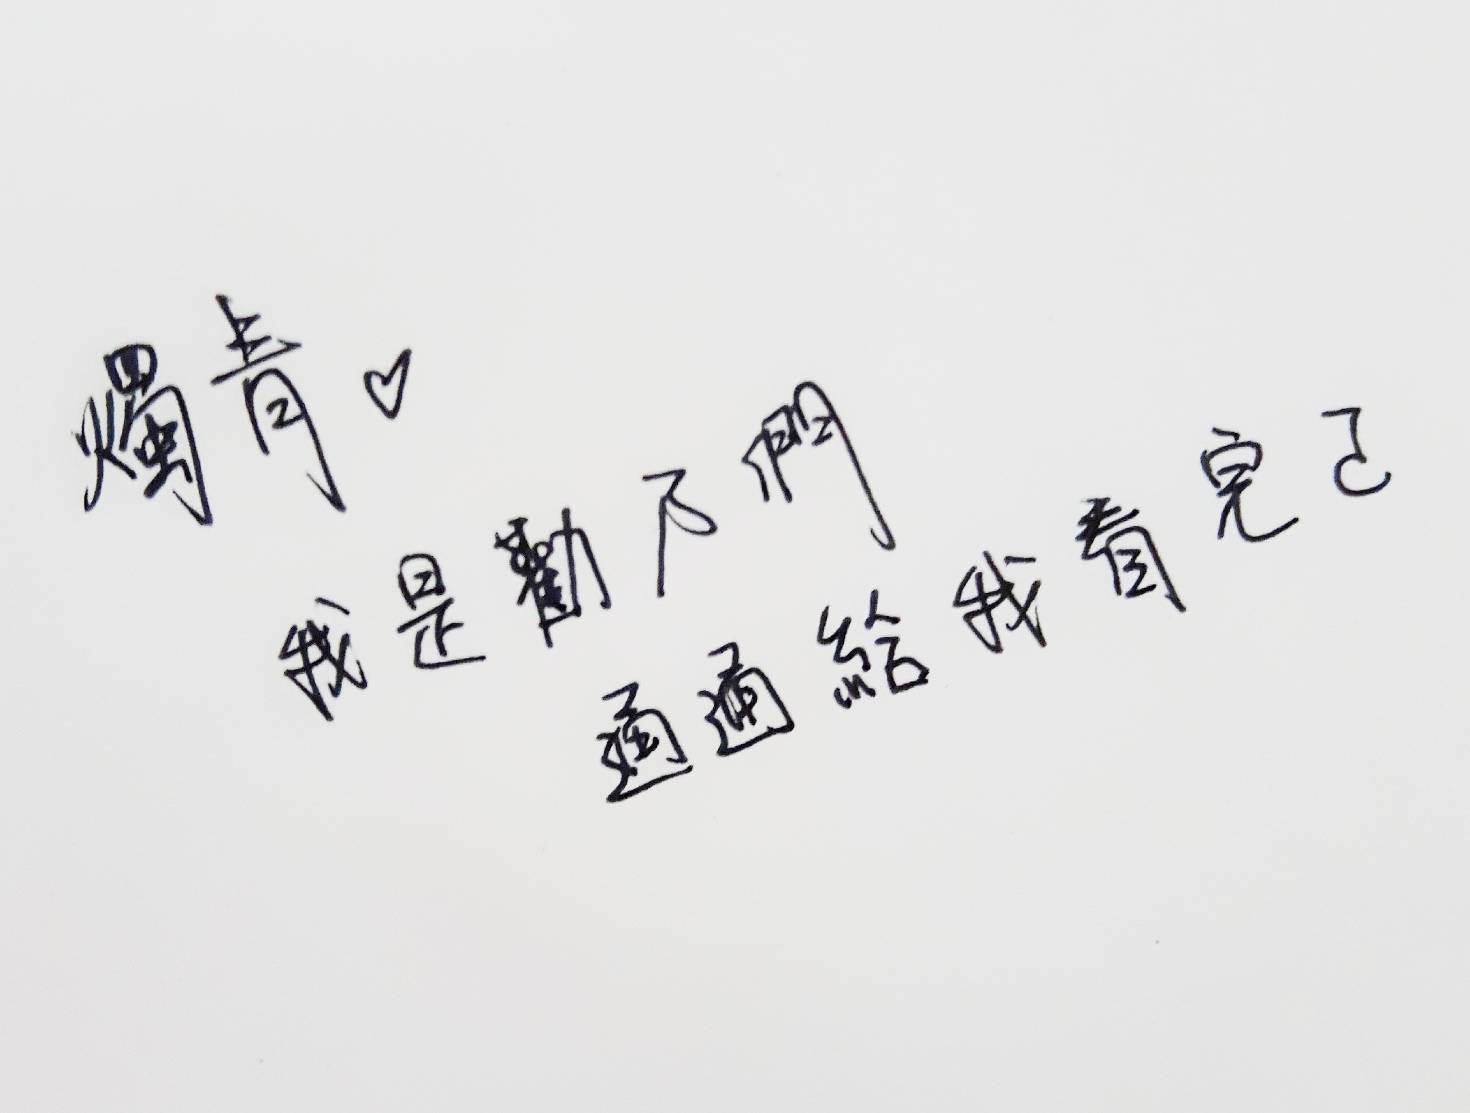 燭青♡
我是勸不們
通通給我看完已